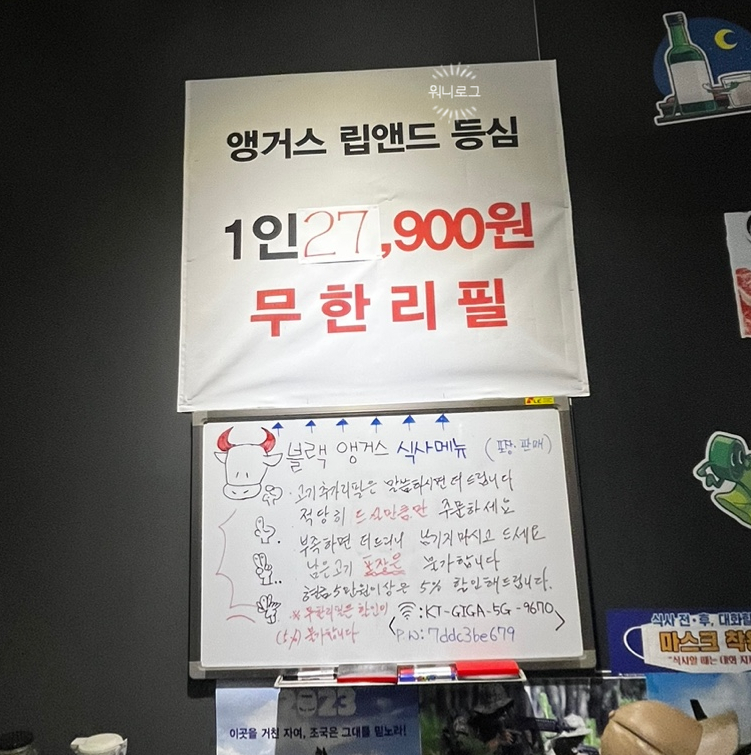 워니로그
앵거스 립앤드 등심
1인 27,900원
무한리필
블랙 앵거스 식사메뉴 (포장·판매)
·고기추가리필은 말씀하시면 더 드립니다
적당히 드실만큼만 주문하세요
부족하면 더드리니 남기지마시고 드세요
남은고기 포장은 불가합니다
현금5만원이상은 5% 할인해드립니다.
※무한리필은 할인이
(5%) 불가합니다
:KT-GIGA-5G-9670
PW:7ddc3be679
식사 전·후, 대화
마스크 착
"식사할 때는 대화
2023
이곳을 거친 자여, 조국은 그대를 믿노라!